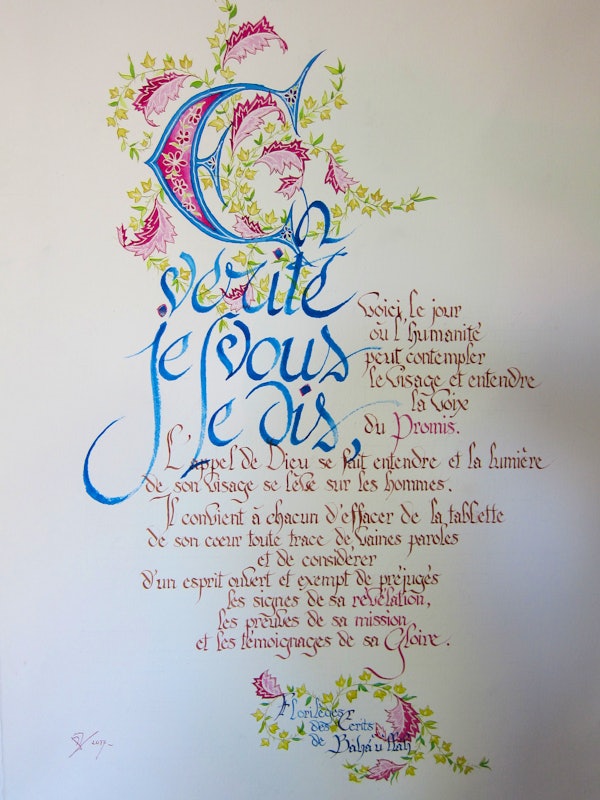 En
vérité
je vous
le dis,
voici le jour
où l'humanité
peut contempler
le visage et entendre
la voix
du Promis.
L'appel de Dieu se fait entendre et la lumière
de son visage se lève sur les hommes.
Il convient à chacun d'effacer de la tablette
de son coeur toute trace de vaines paroles
et de considérer
d'un esprit ouvert et exempt de préjugés
les signes de sa révélation,
les preuves de sa mission
et les témoignages de sa Gloire.
Florilèges
des Ecrits
de Bahá'u'lláh
2017